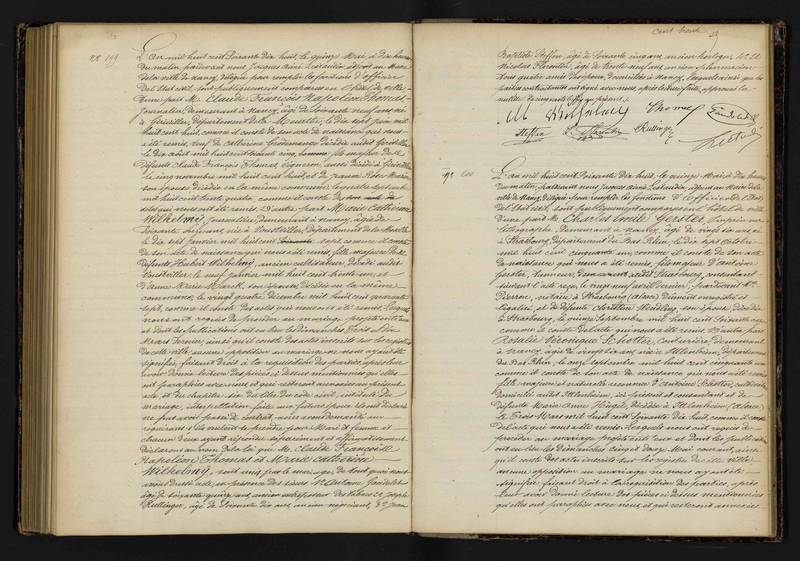 nº 199
L'an mil huit cent soixante dix huit, le quinze Mai, à dix heures
du matin, pardevant nous Jacques Aimé
de la ville de Nancy, délégué pour remplir les fonctions d'officier
de l'Etat civil, sont publiquement comparus en l'hôtel de ville:
d'une part M. Claude François Napoléon Thomas
Journalier, demeurant à Nancy, âgé de soixante
département de la Meurthe, le dix sept Juin mil
huit cent huit, comme il conste de son acte de naissance qui nous
a été remis, veuf de Catherine décédée audit
défunts Claude François Thomas, vigneron, aussi décédé à
le cinq novembre mil huit cent huit, et de Jeanne Rose Marie
son épouse, décédée en la même commune, le
mil huit cent trente quatre, comme il conste
actes qui nous ont été remis. D'autre part Marie Catherine
Wilhelmy, journalière, demeurant à Nancy, âgée de
soixante ans, née à département de la Moselle
le dix sept Janvier mil huit cent sept, comme il conste
de son acte de naissance qui nous a été remis, fille majeure de
défunts Hubert Wilhelmy, ancien cultivateur, décédé audit
le neuf Janvier mil huit cent trente un, et
d'Anne Marie Marck, son épouse, décédée en la même
commune, le vingt quatre décembre mil huit cent quarante
sept, comme il conste des actes qui nous ont été remis. Lesquels
nous ont requis de procéder au mariage projeté entre eux
et dont les publications ont eu lieu les dimanches
Mars dernier, ainsi qu'il conste des actes inscrits sur les registres
de cette ville; aucune opposition au mariage ne nous ayant été
signifiée, faisant droit à la réquisition des parties, après leur
avoir donné lecture des pièces ci dessus mentionnées qu'elles
ont paraphées avec nous et qui resteront annexées au présent
acte, et du chapitre six du titre du code civil, intitulé du
mariage, interpellation faite aux futurs, qui ont déclaré
ne pas avoir passé de contrat, nous avons demandé aux
requérants s'ils veulent se prendre pour Mari et femme et
chacun d'eux ayant répondu séparément et affirmativement
déclarons au nom de la loi que M. Claude François
Napoléon Thomas et Marie Catherine
Wilhelmy, sont unis par le mariage; de tout quoi nous
avons dressé acte, en présence des sieurs 1º Antoine
âgé de soixante quinze ans, ancien des tabacs, 2º Joseph
Rullinger, âgé de soixante dix ans, ancien négociant, 3º Jean
cent trente
Baptiste Steffen, âgé de soixante cinq ans, ancien horloger, 4º et
Nicolas Florentin, âgé de trente ans, ancien pharmacien
tous quatre amis des époux, domiciliés à Nancy, lesquels ainsi que les
parties contractantes ont signé avec nous, après lecture faite
M Wilhelmy Thomas
Steffen Rullinger
nº 200
L'an mil huit cent soixante dix huit, le quinze Mai, à dix heures
du matin, pardevant nous Jacques Aimé adjoint au Maire de la
ville de Nancy, délégué pour remplir les fonctions d'officier de l'Etat
civil, sont publiquement comparus en l'hôtel de ville:
d'une part M. Charles Emile Gerster, imprimeur
lithographe, demeurant à Nancy, âgé de vingt six ans, né
à Strasbourg, département du Bas Rhin, le dix sept Octobre
mil huit cent cinquante un, comme il conste de son acte
de naissance qui nous a été remis, fils majeur d'Antoine
Gerster, tourneur, demeurant audit Strasbourg, consentant
suivant l'acte reçu, le vingt neuf avril dernier, pardevant Me
Pierron, notaire à Strasbourg (alsace), dûment enregistré et
légalisé, et de défunte Christine son épouse, décédée
à Strasbourg, le quinze Septembre mil huit cent soixante
comme il conste de l'acte qui nous a été remis. D'autre part
Rosalie Véronique Schotter, couturière, demeurant
à Nancy, âgée de vingt six ans, née à Ittlenheim, département
du Bas Rhin, le Septembre mil huit cent cinquante
comme il conste de son acte de naissance qui nous a été remis,
fille majeure et naturelle reconnue d'Antoine Schotter, cultivateur
domicilié audit Ittlenheim, ici présent et consentant et de
défunte Marie Anne décédée à Ittlenheim (alsace)
le trois Mars mil huit cent soixante dix huit, comme il conste
de l'acte qui nous a été remis. Lesquels nous ont requis de
procéder au mariage projeté entre eux et dont les publications
ont eu lieu les dimanches cinq et douze Mai courant, ainsi
qu'il conste des actes inscrits sur les registres de cette ville;
aucune opposition au mariage ne nous ayant été
signifiée, faisant droit à la réquisition des parties, après
leur avoir donné lecture des pièces ci dessus mentionnées
qu'elles ont paraphées avec nous et qui resteront annexées